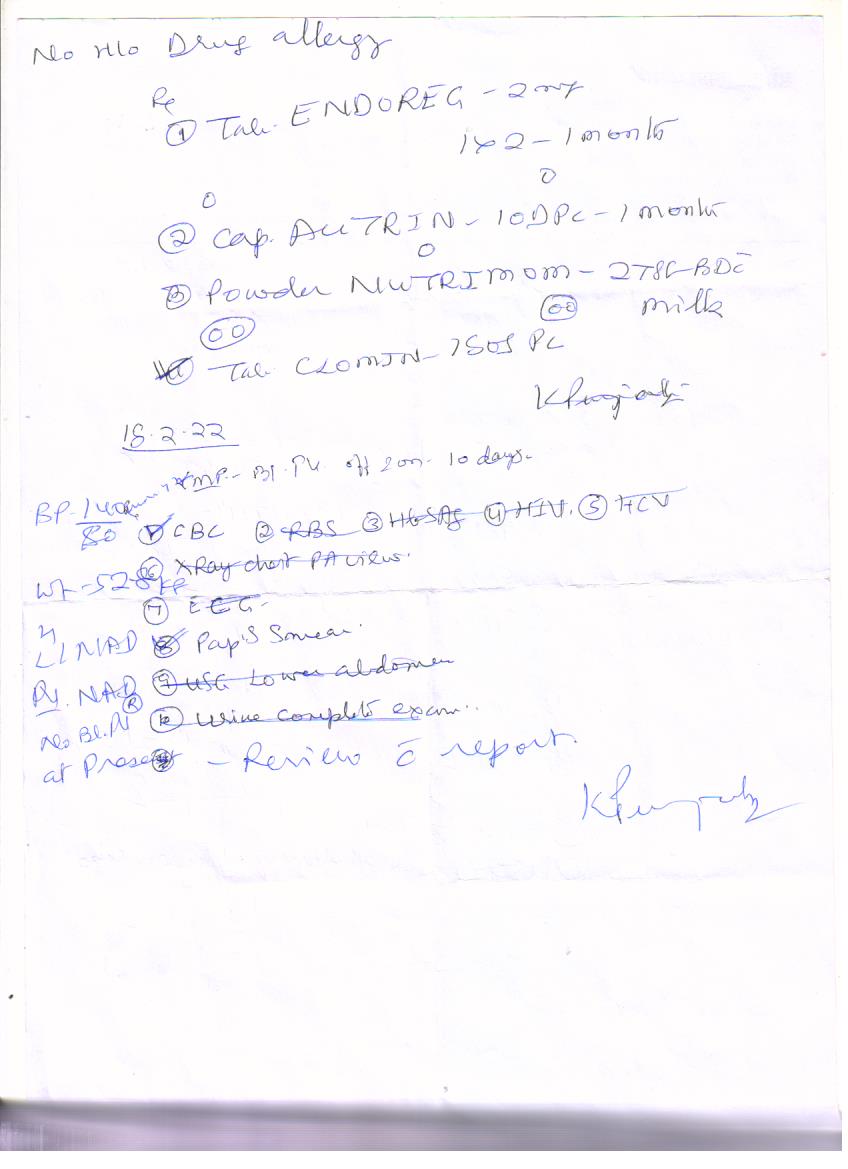 No H/o Drug allergy
Rx
① Tab. ENDOREG - 2mg
1x2 - 1 month
② Cap. AUTRIN - 1ODPC - 1 month
③ Powder NUTRIMOM - 2TSF BD c̄
milk
Tab CLOMIN - 1SOS PC
18.2.22
LMP - Bl. PV off & on - 10 days.
BP - 140
80
① CBC ② RBS ③ HBSAg ④ HIV. ⑤ HCV
⑥ XRay chest PA view.
Wt - 52.8 kg
⑦ ECG
NAD ⑧ Pap's Smear.
NAD ⑨ USG Lower abdomen
No Bl. PV ⑩ Urine complete exam..
at Present - Review c̄ report.